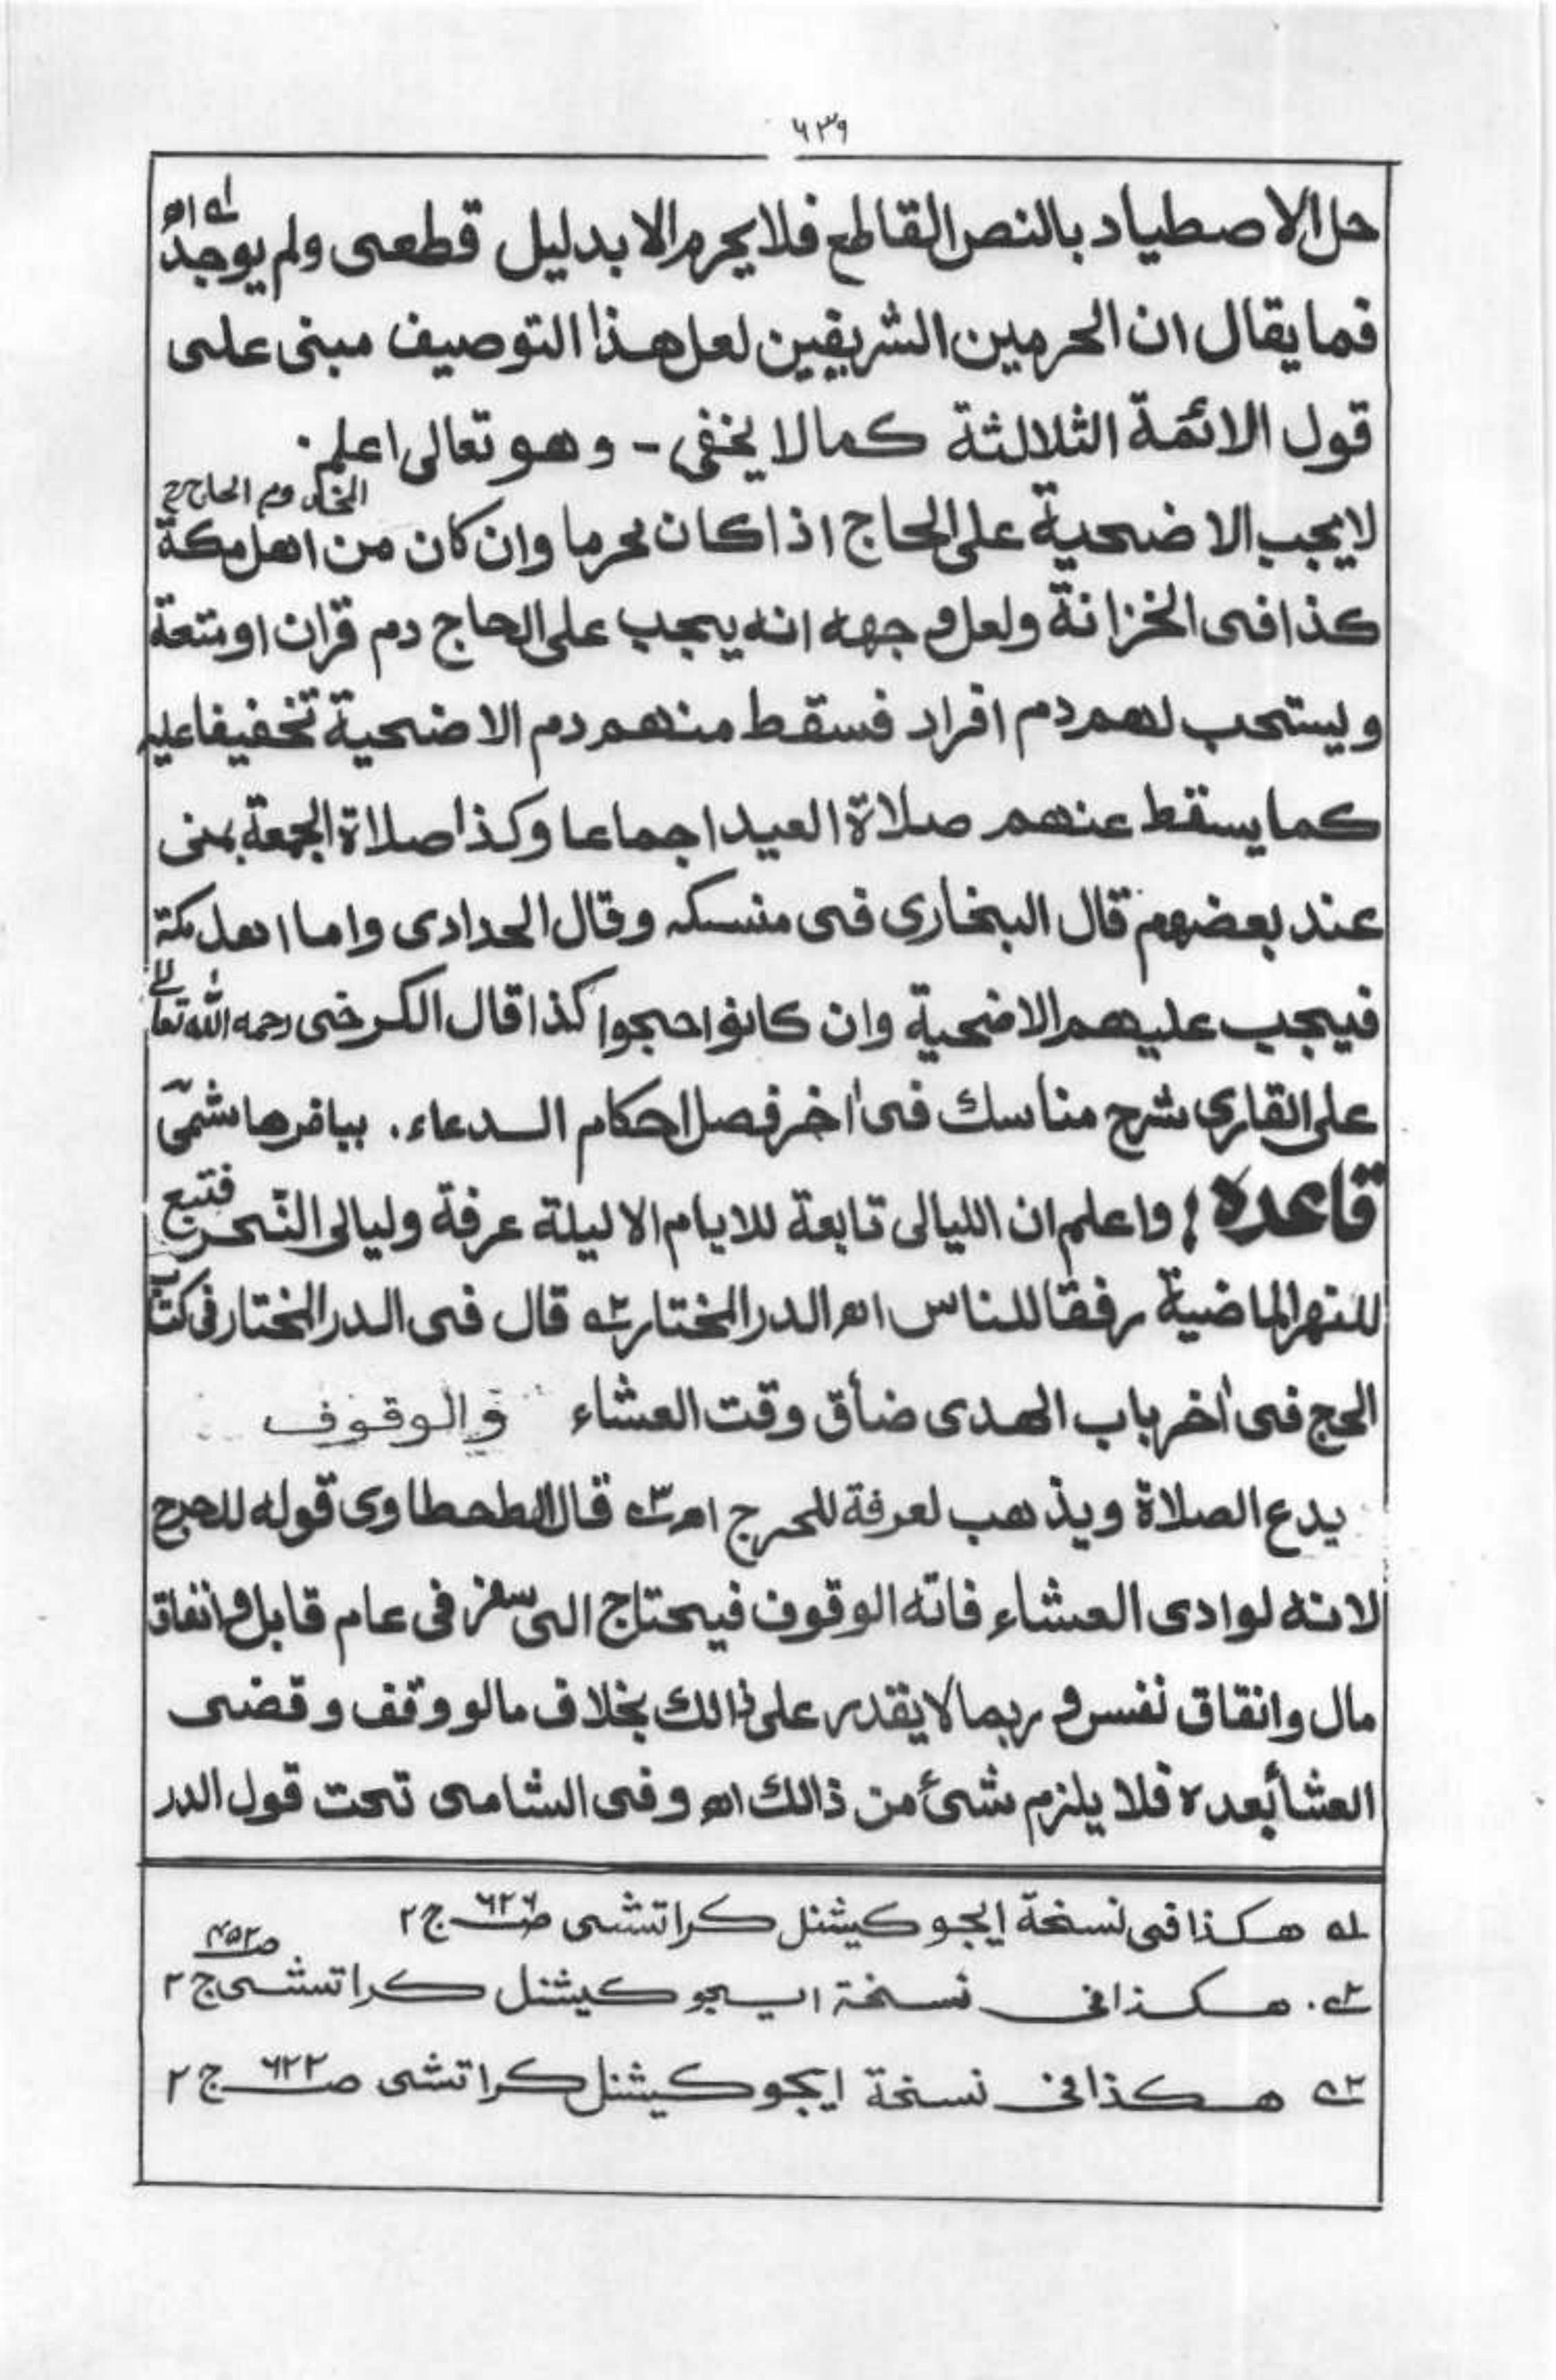 ٦٣٩
حل الاصطياد بالنص القاطع فلا يحرم الا بدليل قطعى ولم يوجد اھ لہ
فما يقال ان الحرمين الشريفين لعل هذا التوصيف مبنى على
قول الائمة الثلاثة كمالا يخفى - وهو تعالى اعلم.
لا يجب الاضحية على الحاج اذا كان محرما وان كان من اهل مكة
كذا فى الخزانة ولعل وجهه انه يجب على الحاج دم قران او متعة
ويستحب لهم دم افراد فسقط منهم دم الاضحية تخفيفا عليهم
كما يسقط عنهم صلاة العيد اجماعا وكذا صلاة الجمعة بمنى
عند بعضهم قال البخارى فى منسكه وقال الحدادى واما اهل مكة
فيجب عليهم الاضحية وان كانوا حجوا كذا قال الكرخى رحمه الله تعالى
على القارى شرح مناسك فى اٰخر فصل احكام الدعاء.
قاعده! واعلم ان الليالى تابعة للايام الا ليلة عرفة وليالى النّحر فتبع
للنهر الماضية رفقا للناس اھ الدر المختار ٢ہ قال فى الدر المختار فى كتاب
الحج فى اٰخر باب الهدى ضأق وقت العشاء والوقوف
يدع الصلاة ويذهب لعرفة للحرج اھ ٣ہ قال الطحطاوى قوله للحرج
لانه لو ادى العشاء فاته الوقوف فيحتاج الى سفر فى عام قابل وانفاق
مال وانقاق نفس و ربما لا يقدر على ذالك بخلاف مالو وقف وقضى
العشأ بعده فلا يلزم شئ من ذالك اھ وفى الشامى تحت قول الدر
١ہ هكذا فى نسخة ايجوكيشنل كراتشى صـ٦٢٦ ج ٢
٢ہ. هكذا فى نسخة ايجوكيشنل كراتشى صـ٤٥٢ ج ٢
٣ہ هكذا فى نسخة ايجوكيشنل كراتشى صـ٦٢٢ ج ٢